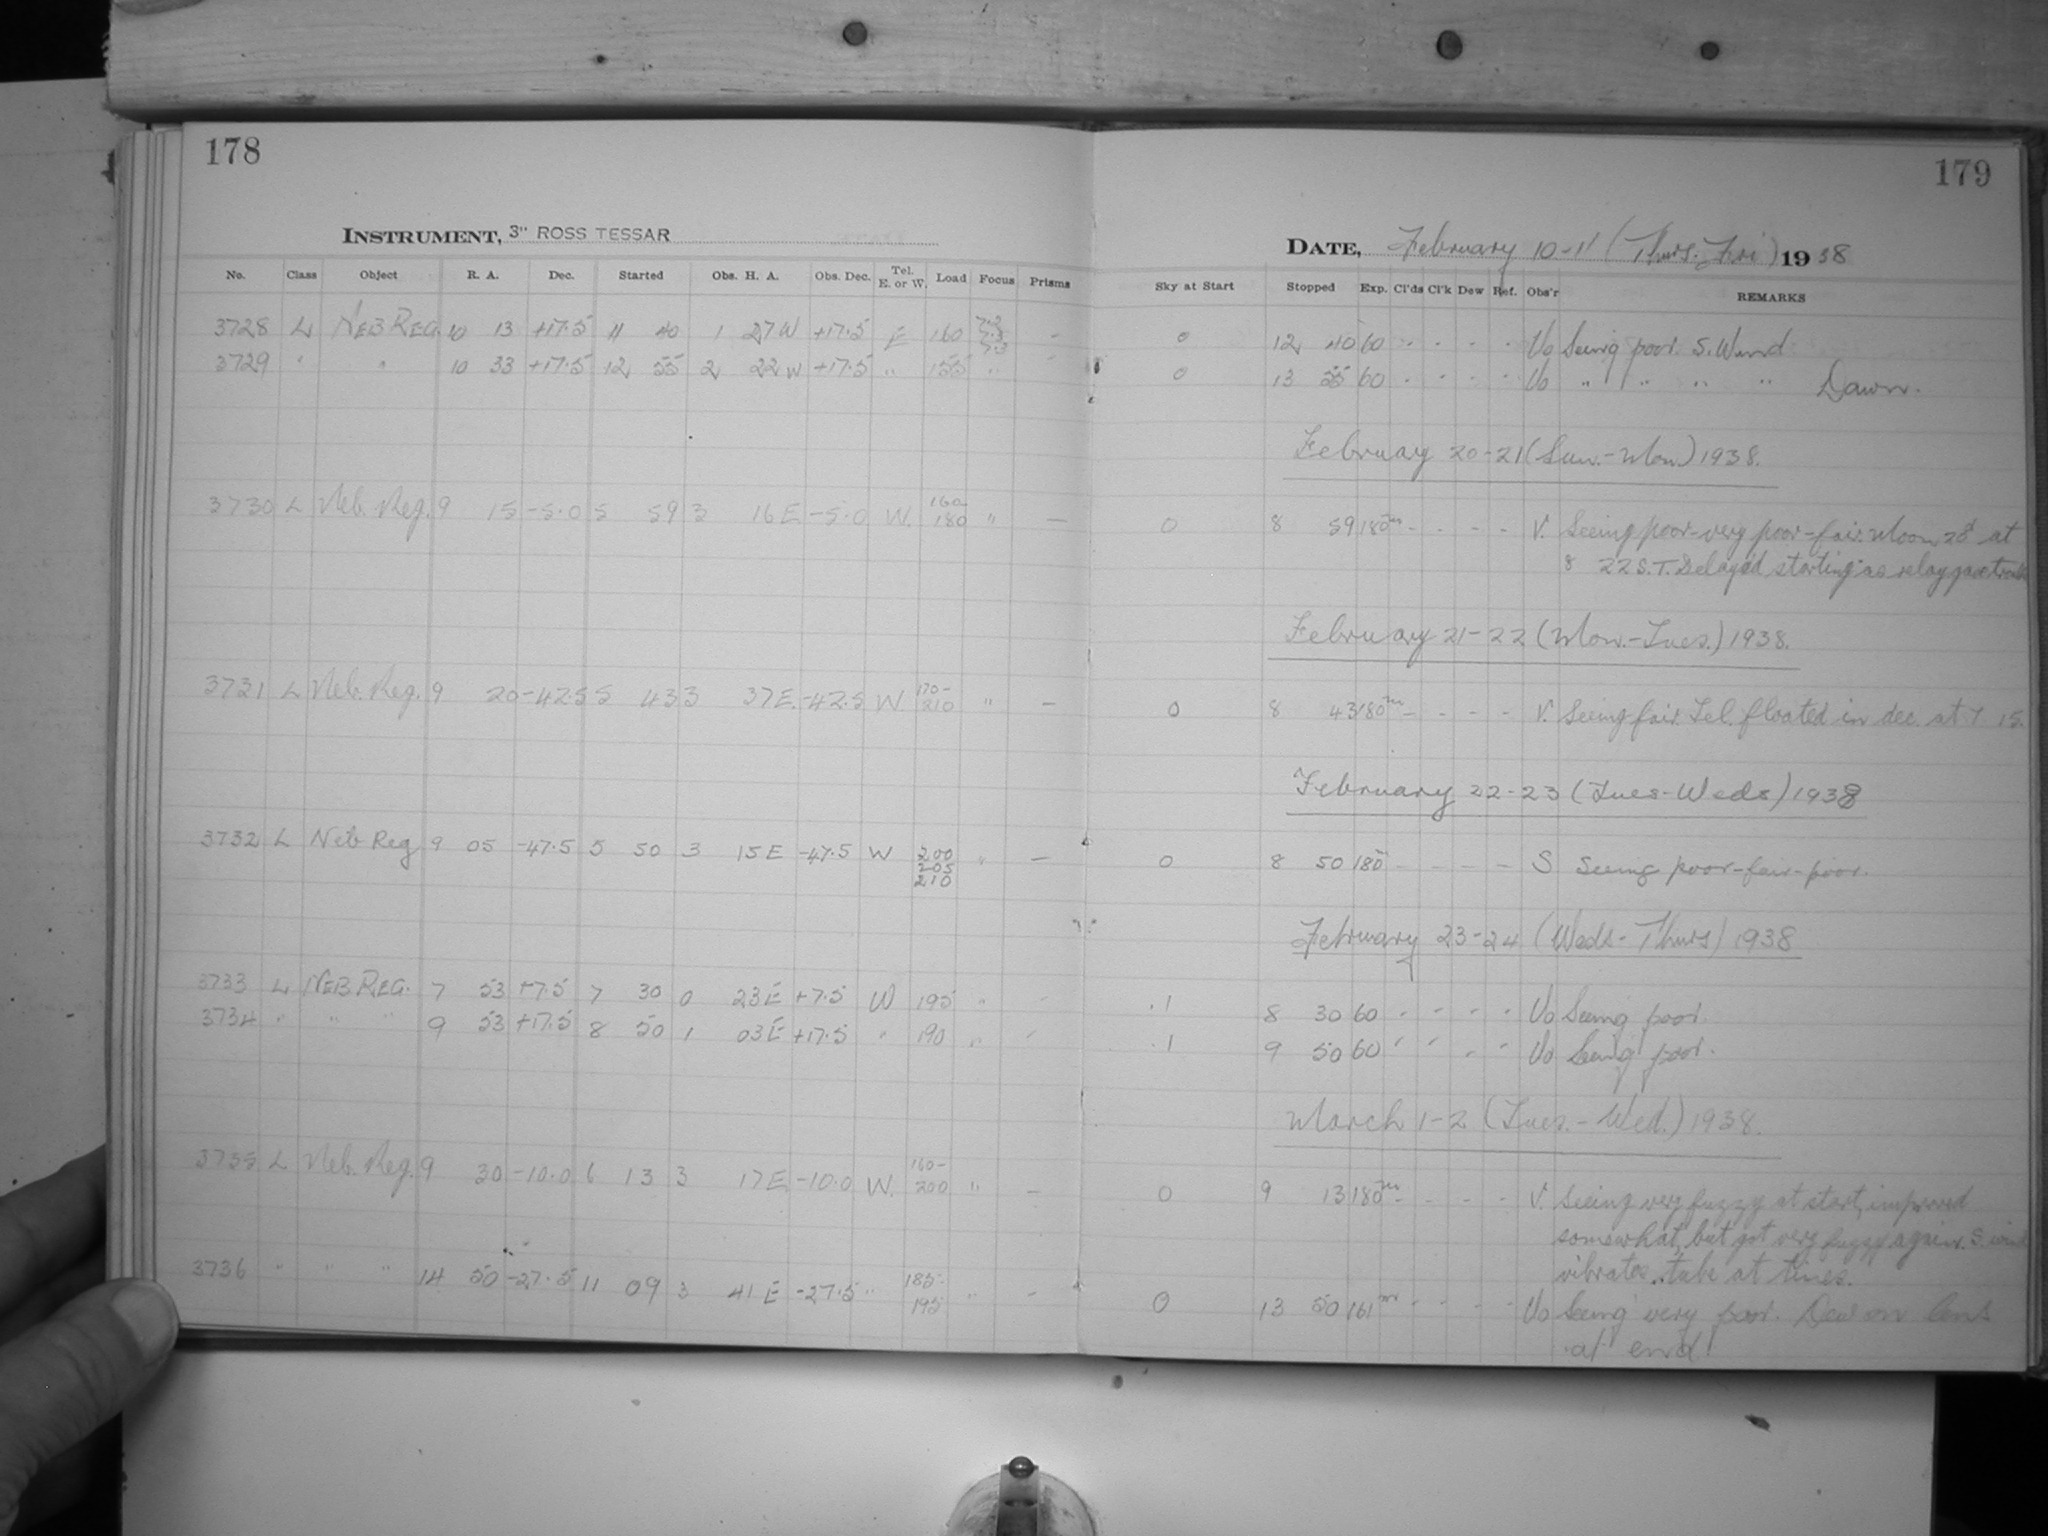 178
179
INSTRUMENT, 3" ROSS TESSAR
DATE, February 10-11 (Thurs.-Fri) 1938
No. Class Object R. A. Dec. Started Obs. H. A. Obs. Dec. Tel. E. or W. Load Focus Prisms Sky at Start Stopped Exp. Cl'ds Cl'k Dew Ref. Obs'r REMARKS
3728 L NEB REG. 10 13 +17.5 11 40 1 27 W +17.5 E 160 7.2 7.3 7.3 - 0 12 40 60 - - - - Vo Seeing poor. S. Wind
3729 " " 10 33 +17.5 12 55 2 22 W +17.5 " 155 " - 0 13 55 60 - - - - Vo " " " " Dawn.
February 20-21 (Sun.-Mon) 1938.
3730 L Neb. Reg. 9 15 -5.0 5 59 3 16 E -5.0 W. 160- 180 " - 0 8 59 180m - - - - V. Seeing poor-very poor-fair. Moon 28d at
8 22 S.T. Delayed starting as relay gave
February 21-22 (Mon.-Tues.) 1938.
3731 L Neb. Reg. 9 20 -42.5 5 43 3 37 E. -42.5 W 170- 210 " - 0 8 43 180m - - - - V. Seeing fair. Tel. floated in dec. at 7 15.
February 22-23 (Tues-Weds) 1938
3732 L Neb Reg 9 05 -47.5 5 50 3 15 E -47.5 W 200 205 210 " - 0 8 50 180m - - - - S Seeing poor-fair-poor.
February 23-24 (Weds-Thurs) 1938
3733 L NEB REG. 7 53 +7.5 7 30 0 23 E +7.5 W 195 " - .1 8 30 60 - - - - Vo Seeing poor.
3734 " " " 9 53 +17.5 8 50 1 03 E +17.5 " 190 " - .1 9 50 60 - - - - Vo Seeing poor.
March 1-2 (Tues.-Wed.) 1938.
3735 L Neb. Reg. 9 30 -10.0 6 13 3 17 E -10.0 W. 160- 200 " - 0 9 13 180m - - - - V. Seeing very fuzzy at start, improved
somewhat, but got very fuzzy again. S. wind
vibrates tube at times.
3736 " " " 14 50 -27.5 11 09 3 41 E -27.5 " 185- 195 " - 0 13 50 161m - - - - Vo Seeing very poor. Dew on lens
at end!